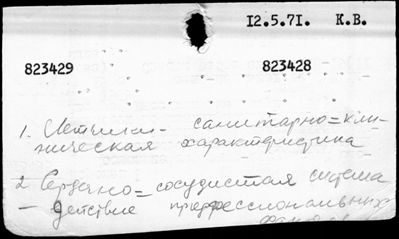 12.5.71. К.В.
823429 823428
1. Летчики - санитарно=кли-
ническая характеристика
2 Сердечно=сосудистая система
- действие профессиональных